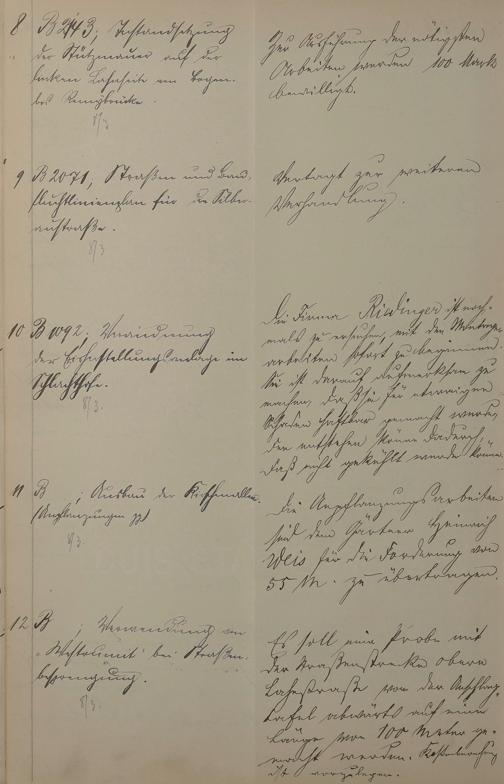 8 B 243; Instandsetzung
der Stützmauer auf der
linken Lahnseite am Bogen
der
8/3
Zur Ausführung der nötigsten
Arbeiten werden 100 Mark
bewilligt.
9 B 2071, Straßen und Bau-
fluchtlinienplan für die Silber-
austraße.
8/3
Vertagt zur weiteren
Verhandlung.
10 B 1092; Veränderung
der Eisherstellungsanlage im
Schlachthofe.
8/3.
Die Firma Riedinger ist noch-
mals zu ersuchen, mit den Montage-
arbeiten sofort zu beginnen.
Sie ist darauf aufmerksam zu
machen, daß sie für etwaigen
Schaden haftbar gemacht werde,
der entstehen könne dadurch,
daß nicht gekühlt werden könne.
11 B ; Ausbau der
(Anpflanzungen pp)
8/3
Die Anpflanzungsarbeiten
sind dem Gärtner Heinrich
Weis für die Forderung von
55 M. zu übertragen.
12 B ; Verwendung von
"Westrumit" bei Straßen-
besprengung.
8/3.
Es soll eine Probe mit
der Straßenstrecke obere
Lahnstraße von der Anschlag-
tafel abwärts auf eine
Länge von 100 Meter ge-
macht werden. Kostenberechnung
ist vorzulegen.